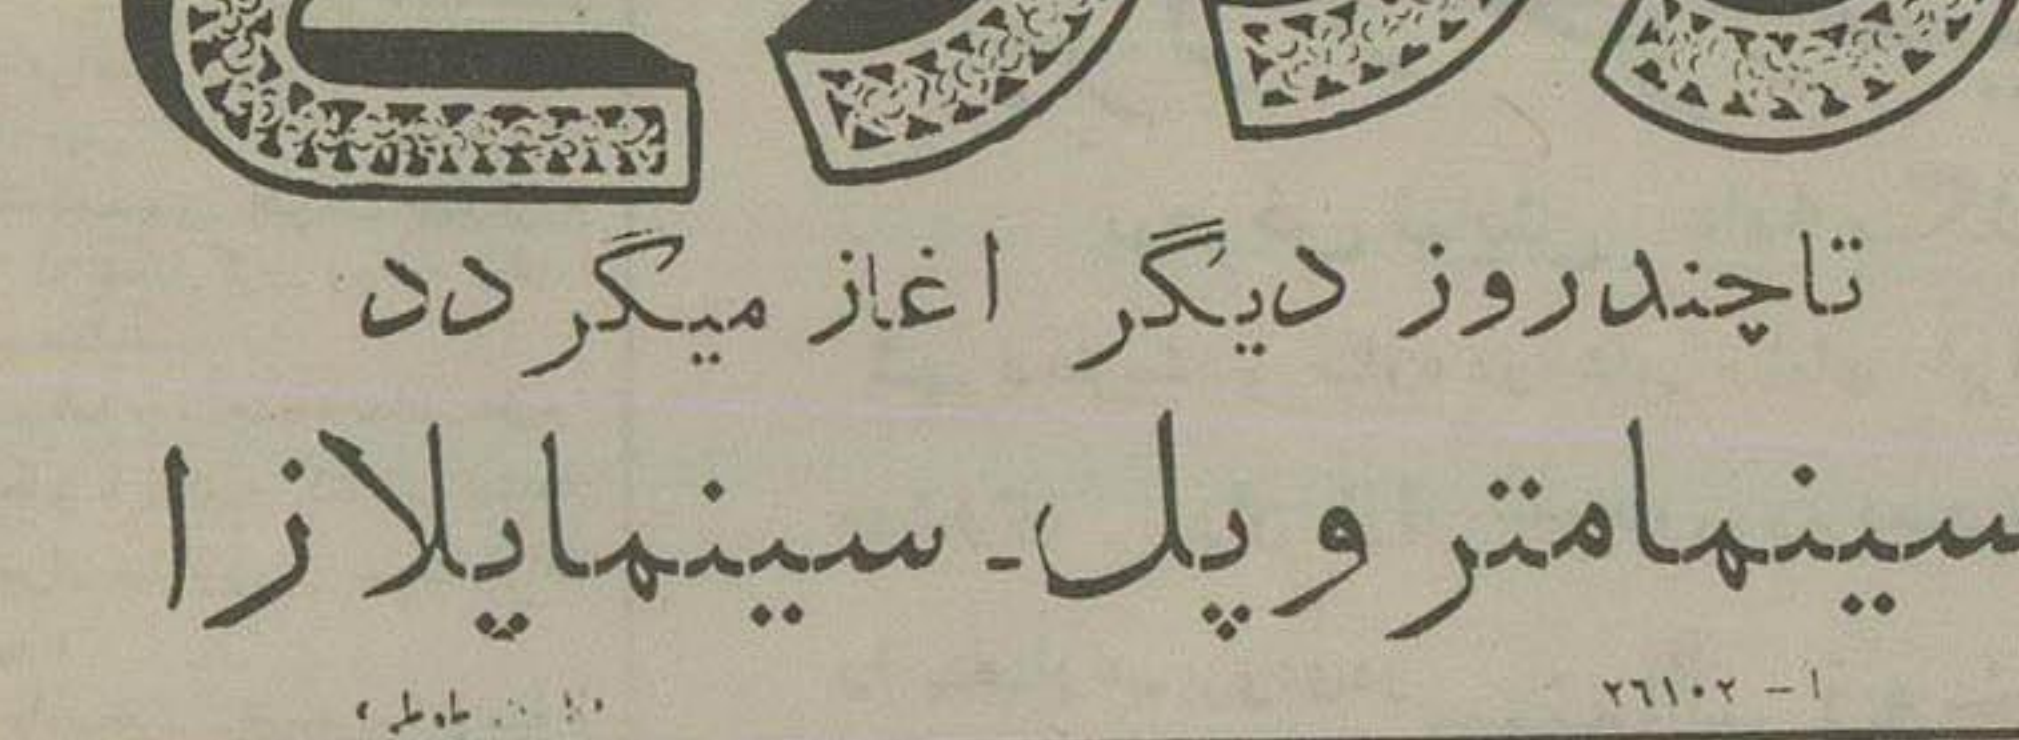 تا چند روز دیگر اغاز میگردد
سینما متروپل - سینما پلازا
۲۶۱۰۲ - ا